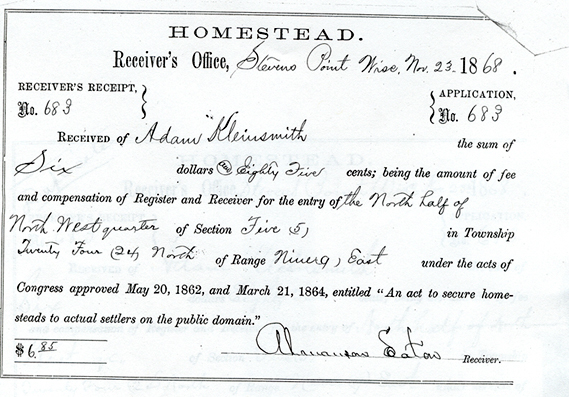 HOMESTEAD.
Receiver's Office, Stevens Point Wisc, Nov. 23 1868.
RECEIVER'S RECEIPT, APPLICATION,
No. 683 No. 683
RECEIVED of Adam Kleinsmith the sum of
Six dollars and Eighty Five cents; being the amount of fee
and compensation of Register and Receiver for the entry of the North half of
North West quarter of Section Five 5, in Township
Twenty Four (24) North of Range Nine 9, East under the acts of
Congress approved May 20, 1862, and March 21, 1864, entitled "An act to secure home-
steads to actual settlers on the public domain."
$6.85 Eaton Receiver.